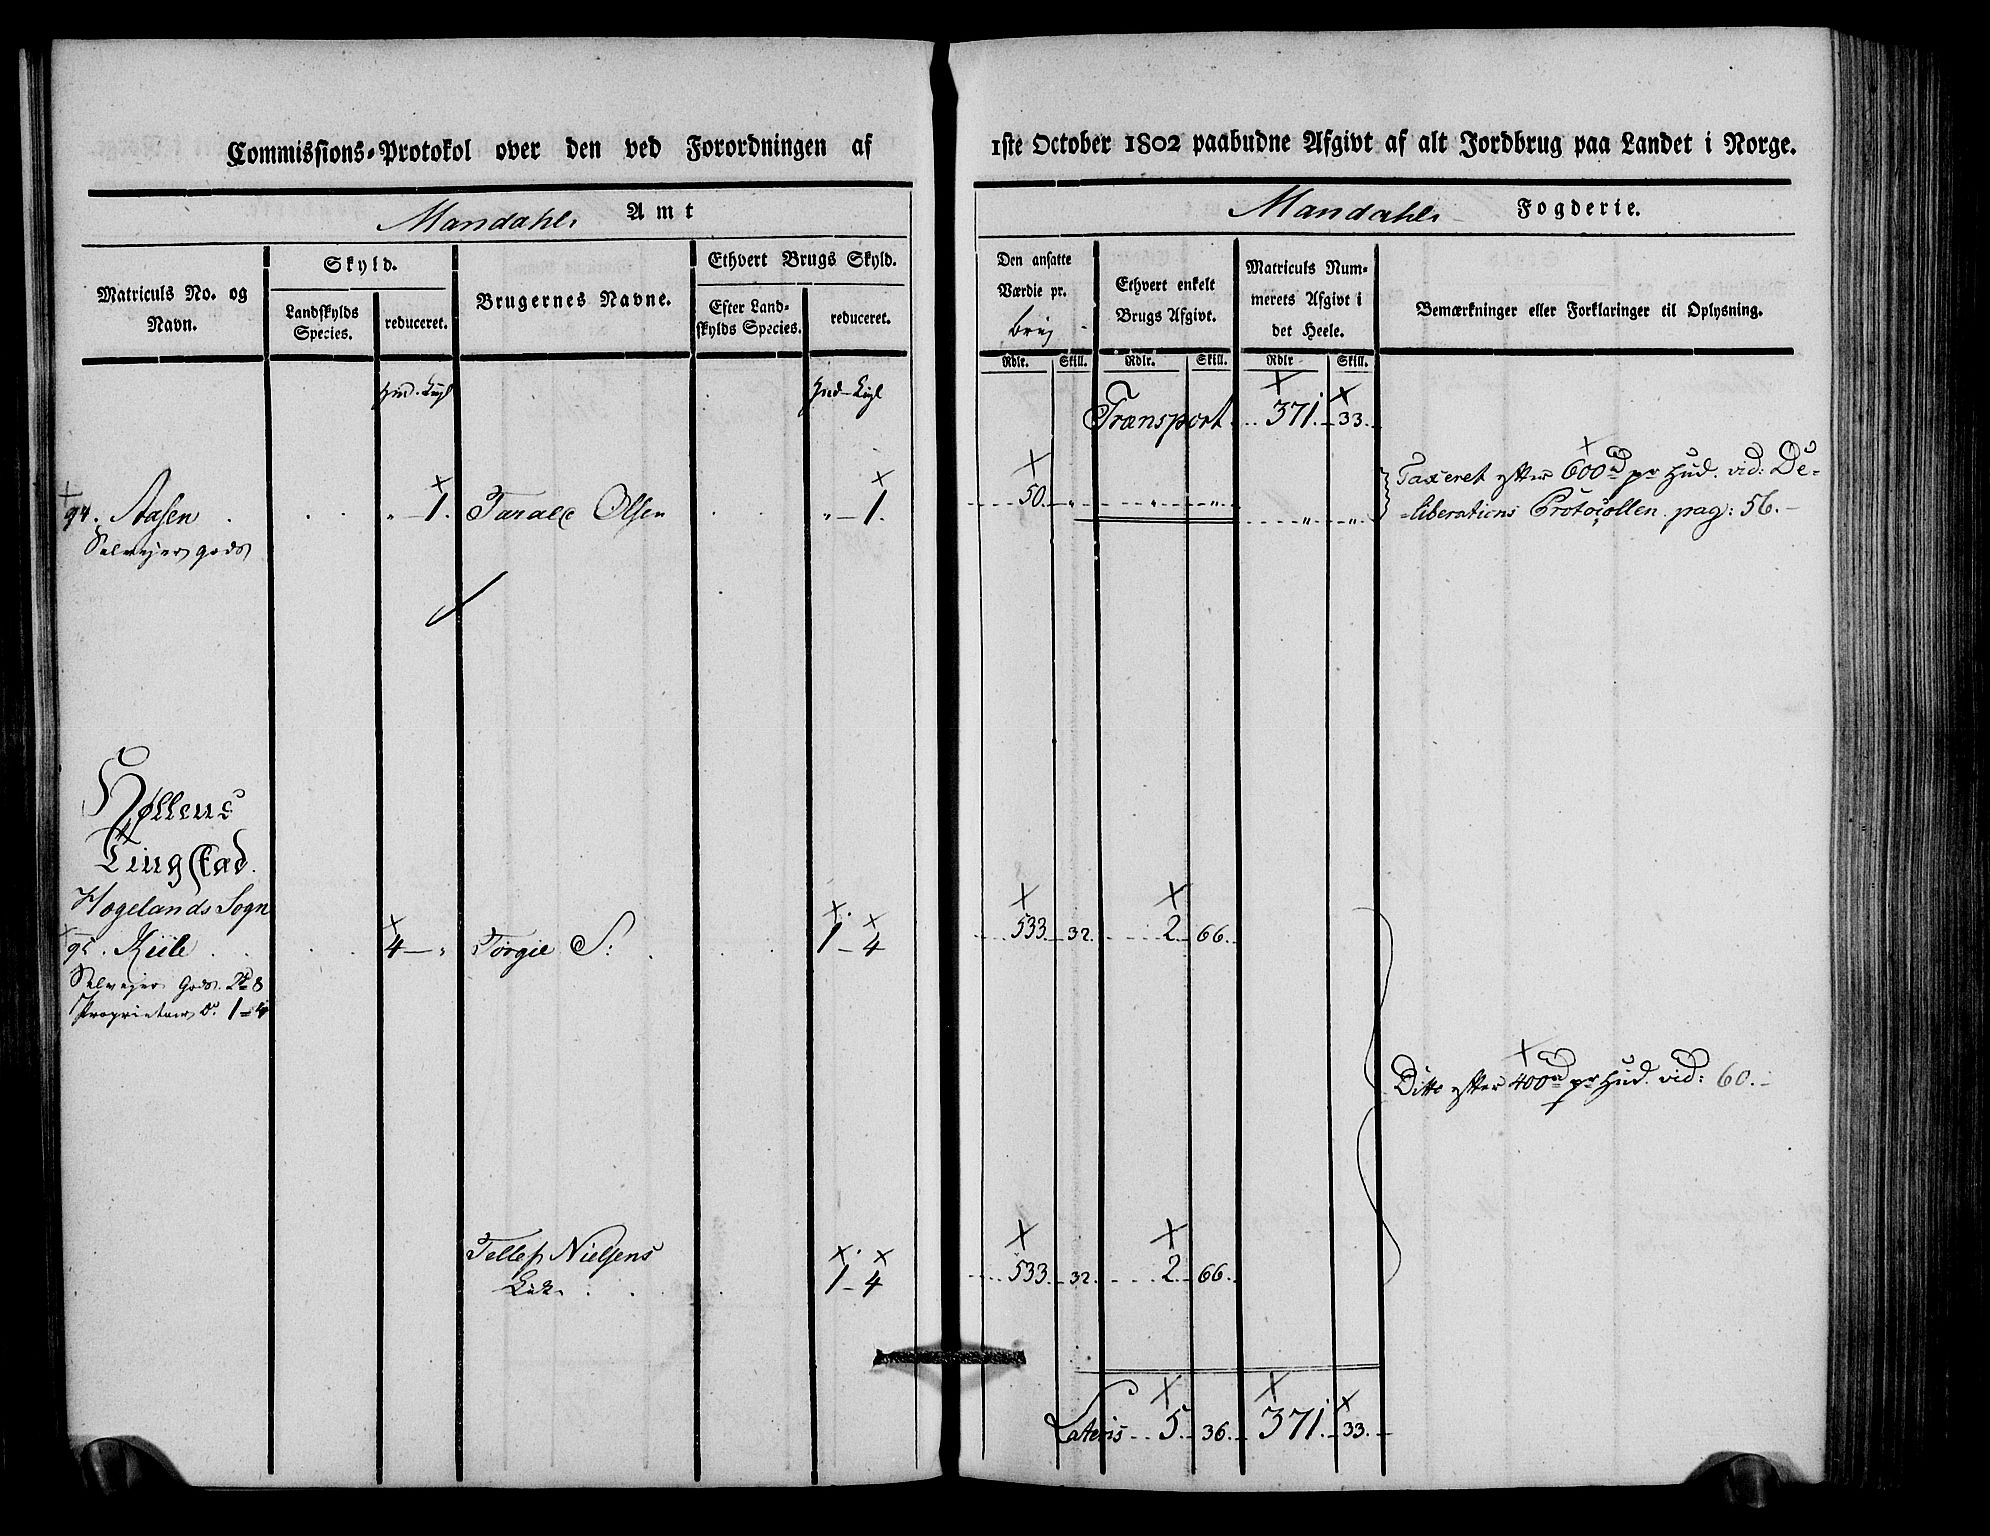 Commissions-Protokol over den ved Forordningen af
1ste October 1802 paabudne Afgivt af alt Jordbrug paa Landet i Norge.
Mandahls Amt
Mandahls Fogderie.
Matriculs No. og
Navn.
Skyld.
Landskylds
Species.
reduceret.
Brugernes Navne.
Ethvert Brugs Skyld.
Efter Land-
skylds Species.
reduceret.
Den ansatte
Værdie pr.
brug
Rdlr. Skill.
Ethvert enkelt
Brugs Afgivt.
Rdlr. Skill.
Matriculs Num-
merets Afgivt i
det Heele.
Rdlr Skill.
Bemærkninger eller Forklaringer til Oplysning.
Transport 371. 33.
94. Aasen 1. Taralc Olsen 1. 50. „ „ „ „ „
Selvejer gods
Taxeret efter 600 rd pr Hud. vid: De-
liberations Protocollen pag: 56.
Hollens
Tingstad.
Høgelands Sogn
95. Kiile 4 „ Torgie S: 1 - 4 533. 32. 2. 66.
Selvejer Gods 2 8
Proprietair do. 1 4
Ditto efter 400 rd pr Hud. vid: 60.
Tellef Nielsens
1 - 4 533. 32. 2. 66.
Lateris 5. 36. 371. 33.